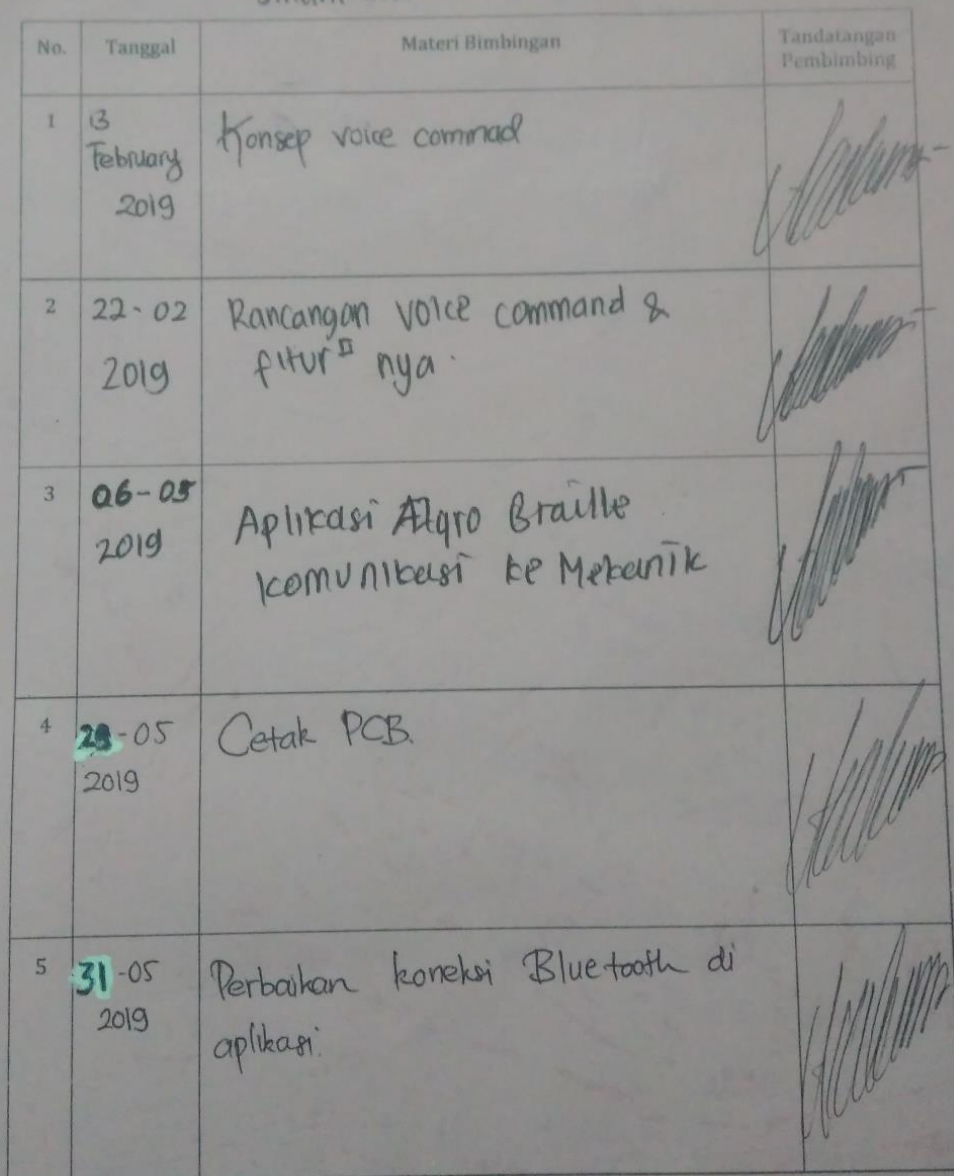 No.
Tanggal
Materi Bimbingan
Tandatangan
Pembimbing
1
13
February
2019
Konsep voice commad
2
22-02
2019
Rancangan voice command &
fitur² nya.
3
06-05
2019
Aplikasi Alqro Braille
komunikasi ke Mekanik
4
-05
2019
Cetak PCB.
5
31-05
2019
Perbaikan koneksi Bluetooth di
aplikasi.